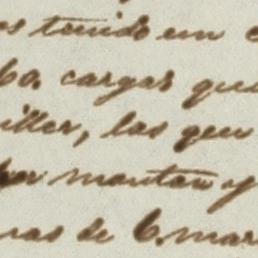 os tenido em
60. cargas que
iller, las que
por montan y
ras de 6. mar